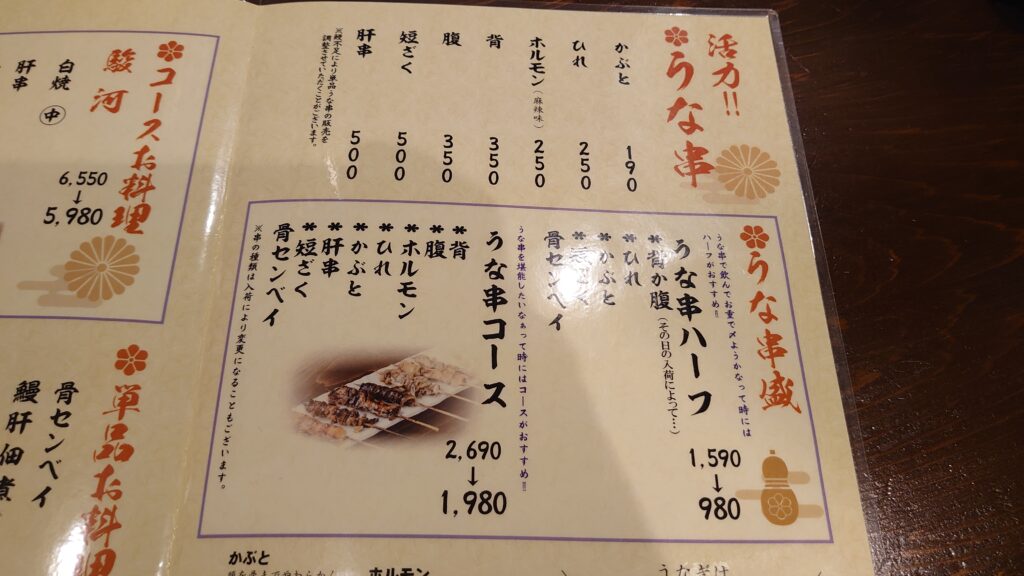 活力!!
うな串
かぶと 190
ひれ 250
ホルモン(麻辣味) 250
背 350
腹 350
短ざく 500
肝串 500
※鰻不足により単品うな串の販売を
調整させていただくことがございます。
うな串盛
うな串で飲んでお重で〆ようかなって時には
ハーフがおすすめ!!
うな串ハーフ 1,590
↓
980
*背か腹(その日の入荷によって…)
*ひれ
*かぶと
*短ざく
骨センベイ
うな串を堪能したいなぁって時にはコースがおすすめ!!
うな串コース 2,690
↓
1,980
*背
*腹
*ホルモン
*ひれ
*かぶと
*肝串
*短ざく
骨センベイ
※串の種類は入荷により変更になることもございます。
コースお料理
駿河
6,550
↓
5,980
白焼 中
肝串
単品お料理
骨センベイ
鰻肝佃煮
かぶと
ホルモン
うなぎは